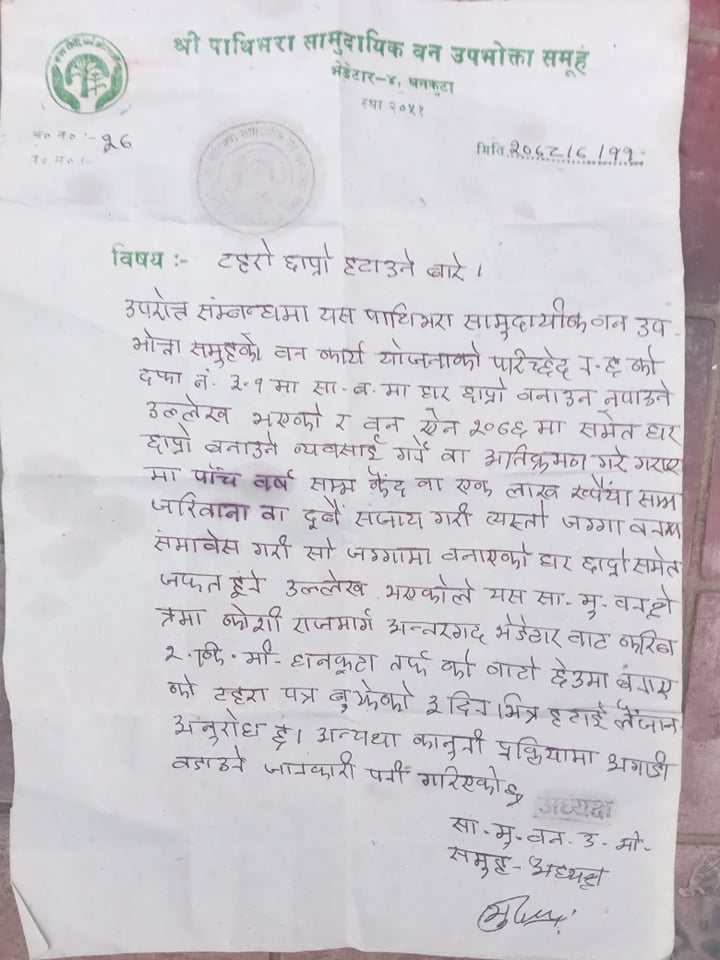 श्री पाथिभरा सामुदायिक वन उपभोक्ता समूह
भेडेटार-४, धनकुटा
स्था २०५१
च० न० :- २६
प० न० :-
मिति २०६८/६/११
विषय :- टहरो छाप्रो हटाउने बारे ।
उपरोक्त संम्बन्धमा यस पाथिभरा सामुदायीक वन उप-
भोक्ता समुहको वन कार्य योजनाको परिच्छेद
दफा नं. ३.१ मा सा. व. मा घर छाप्रो बनाउन नपाउने
उल्लेख भएको र वन ऐन २०४९ मा समेत घर
छाप्रो बनाउने व्यवसाई गर्ने वा अतिक्रमण गरे गराए
मा पाँच वर्ष साम्म कैद वा एक लाख रुपैया साम्म
जरिवाना वा दुबै सजाय गरी त्यस्तो जग्गा वनमा
समावेस गरी सो जग्गामा बनाएको घर छाप्रो समेत
जफत हुने उल्लेख भएकोले यस सा. मु. वन क्षे
त्रमा कोशी राजमार्ग अन्तरगद भेडेटार बाट करिब
२. कि. मी. धानकुटा तर्फ को बाटो छेउमा बनाए
को टहरा पत्र बुझेको ३ दिन भित्र हटाई लैजान
अनुरोध छ। अन्यथा कानुनी प्रक्रियामा अगाडी
बडाउने जानकारी पनी गरिएकोछ
अध्यक्ष
सा. मु. वन. उ. भो.
समुह - अध्यक्ष